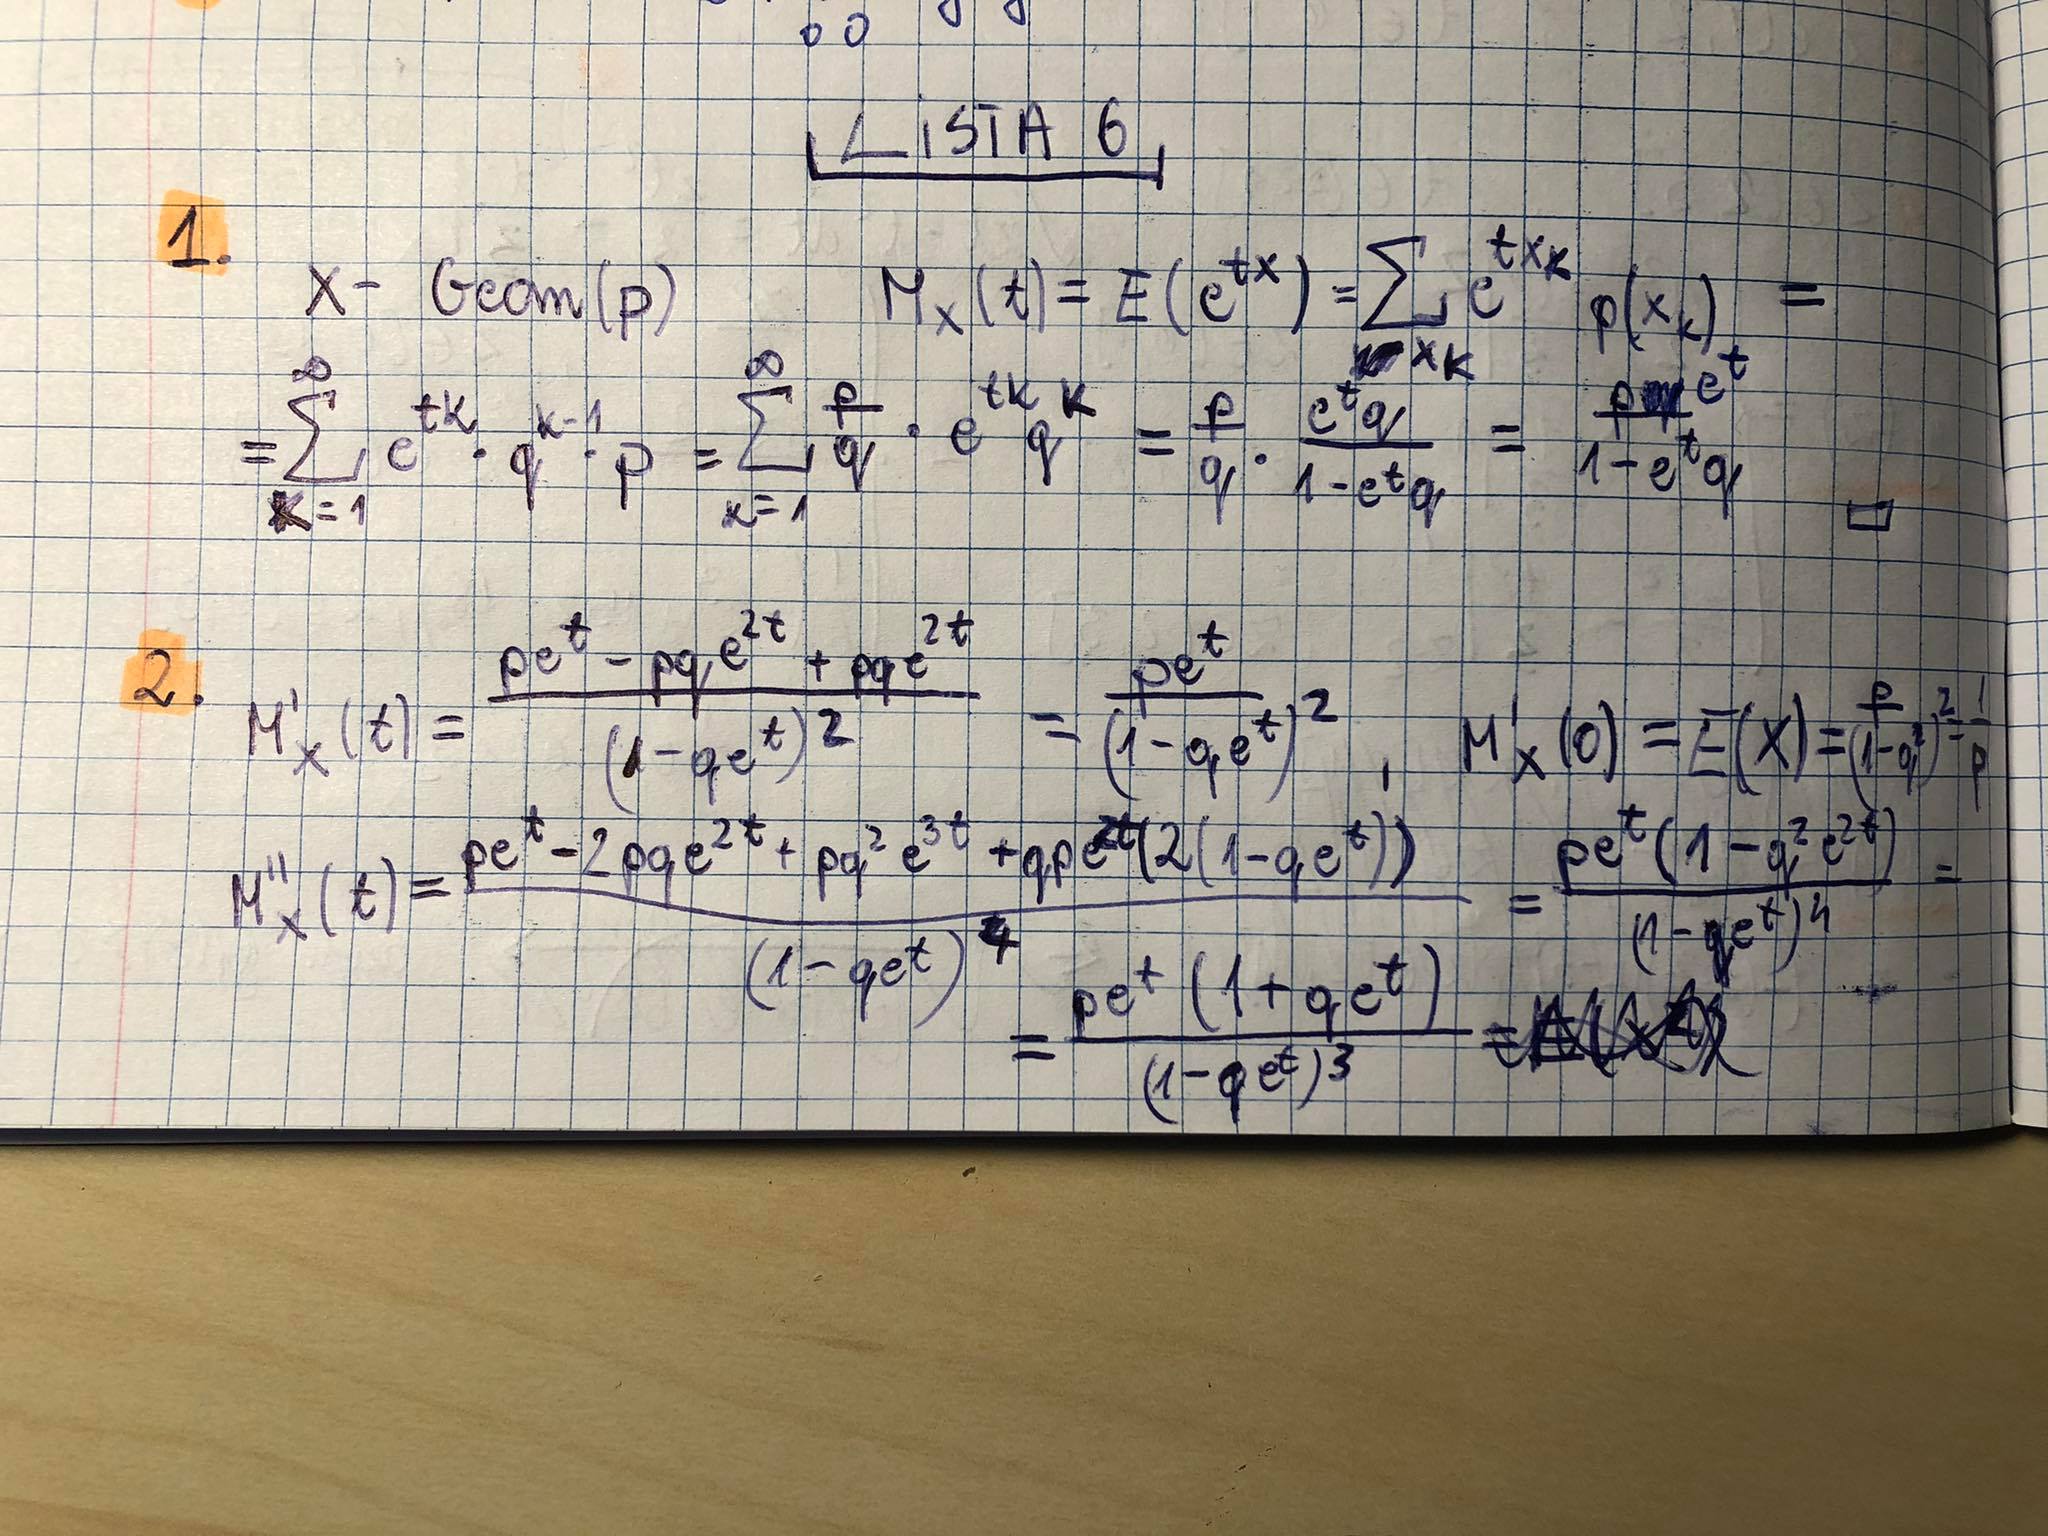 LiSTA 6
1.
X - Geom(p) M_X(t) = E(e^{tX}) = ∑_{x_k} e^{tx_k} p(x_k) =
= ∑_{k=1}^{∞} e^{tk} · q^{k-1} · p = ∑_{k=1}^{∞} p/q · e^{tk} q^k = p/q · e^t q/(1-e^t q) = pe^t/(1-e^t q) □
2. M'_X(t) = (pe^t - pqe^{2t} + pqe^{2t})/(1-qe^t)^2 = pe^t/(1-qe^t)^2 , M'_X(0) = E(X) = p/(1-q)^2 = 1/p
M''_X(t) = (pe^t - 2pqe^{2t} + pq^2e^{3t} + qpe^{2t}(2(1-qe^t)))/(1-qe^t)^4 = pe^t(1-q^2e^{2t})/(1-qe^t)^4 =
= pe^t(1+qe^t)/(1-qe^t)^3 =